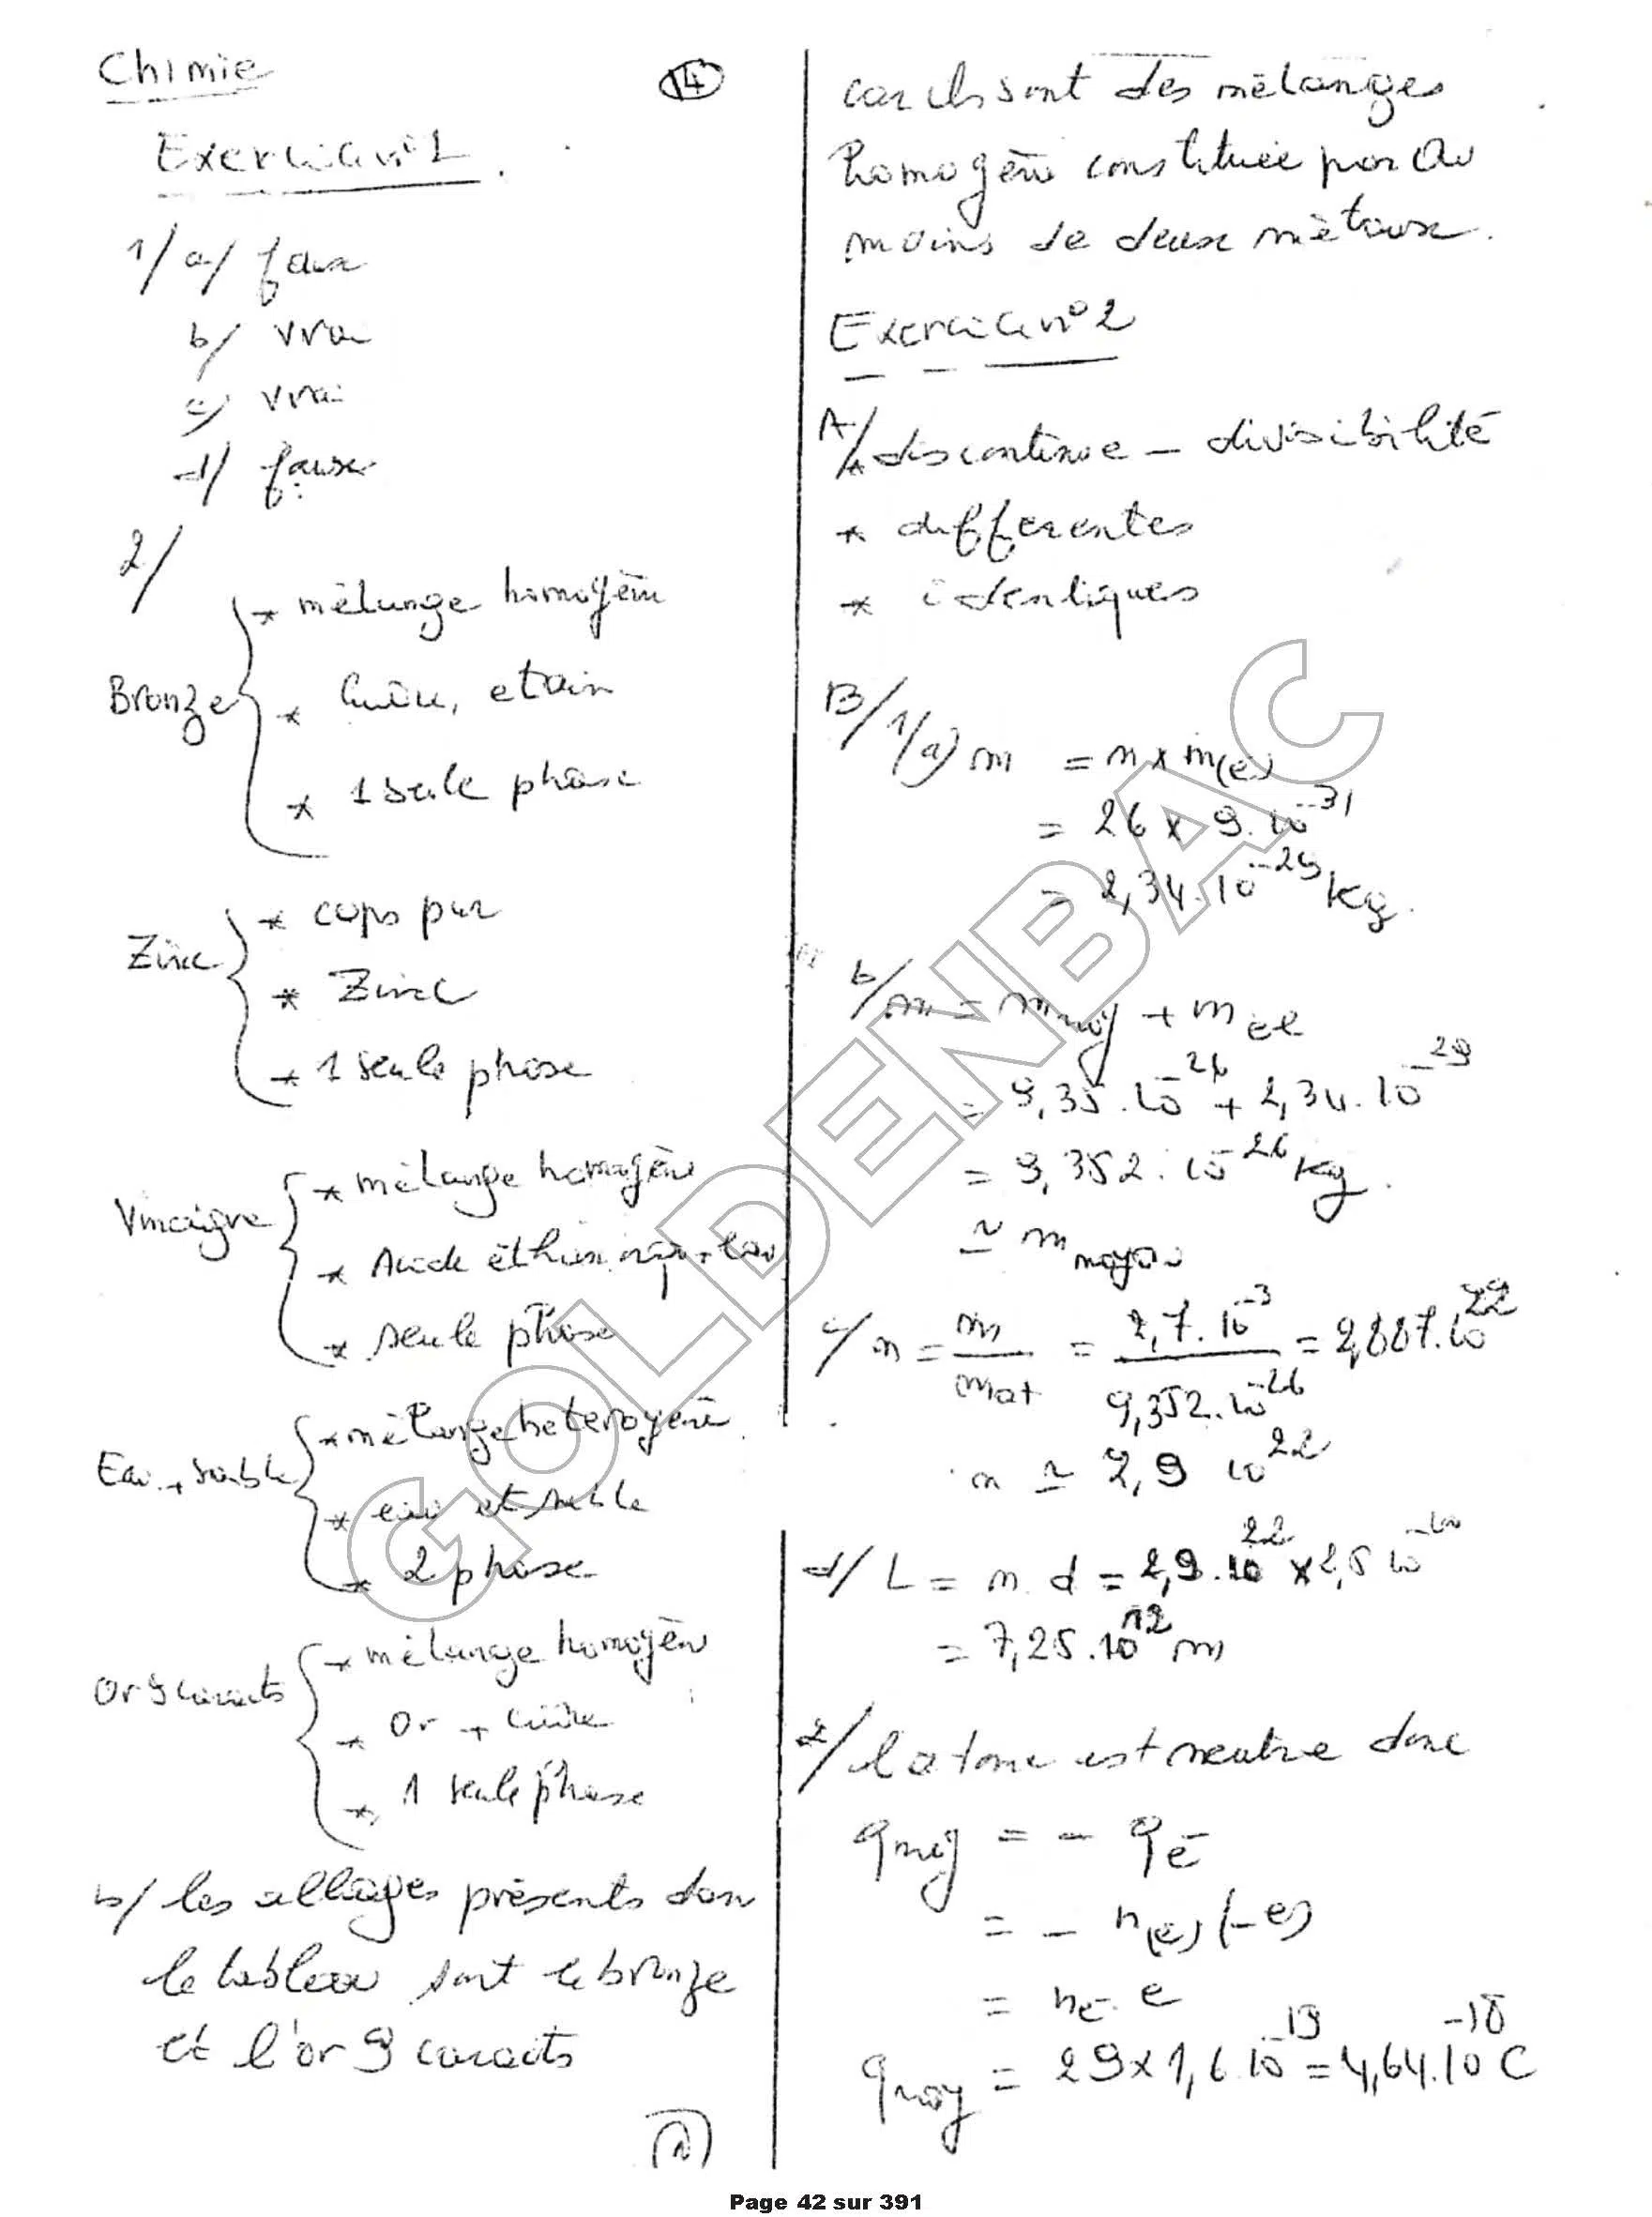 Chimie
14
Exercice n°1
1/ a/ faux
b/ vrai
c/ vrai
d/ faux
2/
* mélange homogène
Bronze * Cuivre, etain
* 1 seule phase
* cops pur
Zinc * Zinc
* 1 seule phase
* mélange homogène
Vinaigre * Acide éthanoïque + eau
* seule phase
* mélange heterogène
Eau + sable * eau et sable
* 2 phase
* mélange homogène
Or 9 carats * Or + cuivre
* 1 seule phase
b/ les alliages présents dans
le tableau sont le bronze
et l'or 9 carats
car ils sont des mélanges
homogène constituée par au
moins de deux métaux.
Exercice n°2
A/ * discontinue - divisibilité
* differentes
* identiques
B/ 1/ a) m = n x m(e-)
= 26 x 9.10^-31
= 2,34.10^-29 Kg.
b/ m = m noy + m el
= 9,35.10^-26 + 2,34.10^-29
= 9,352.10^-26 Kg.
≃ m noyau
c/ n = m / m at = 2,7.10^-3 / 9,352.10^-26 = 2,887.10^22
n ≃ 2,9 10^22
d/ L = n.d = 2,9.10^22 x 2,5 10^-10
= 7,25.10^12 m
2/ l'atome est neutre donc
q noy = - q e-
= - n(e-) (-e)
= n e- . e
q noy = 29 x 1,6.10^-19 = 4,64.10^-18 C
GOLDENBAC
Page 42 sur 391